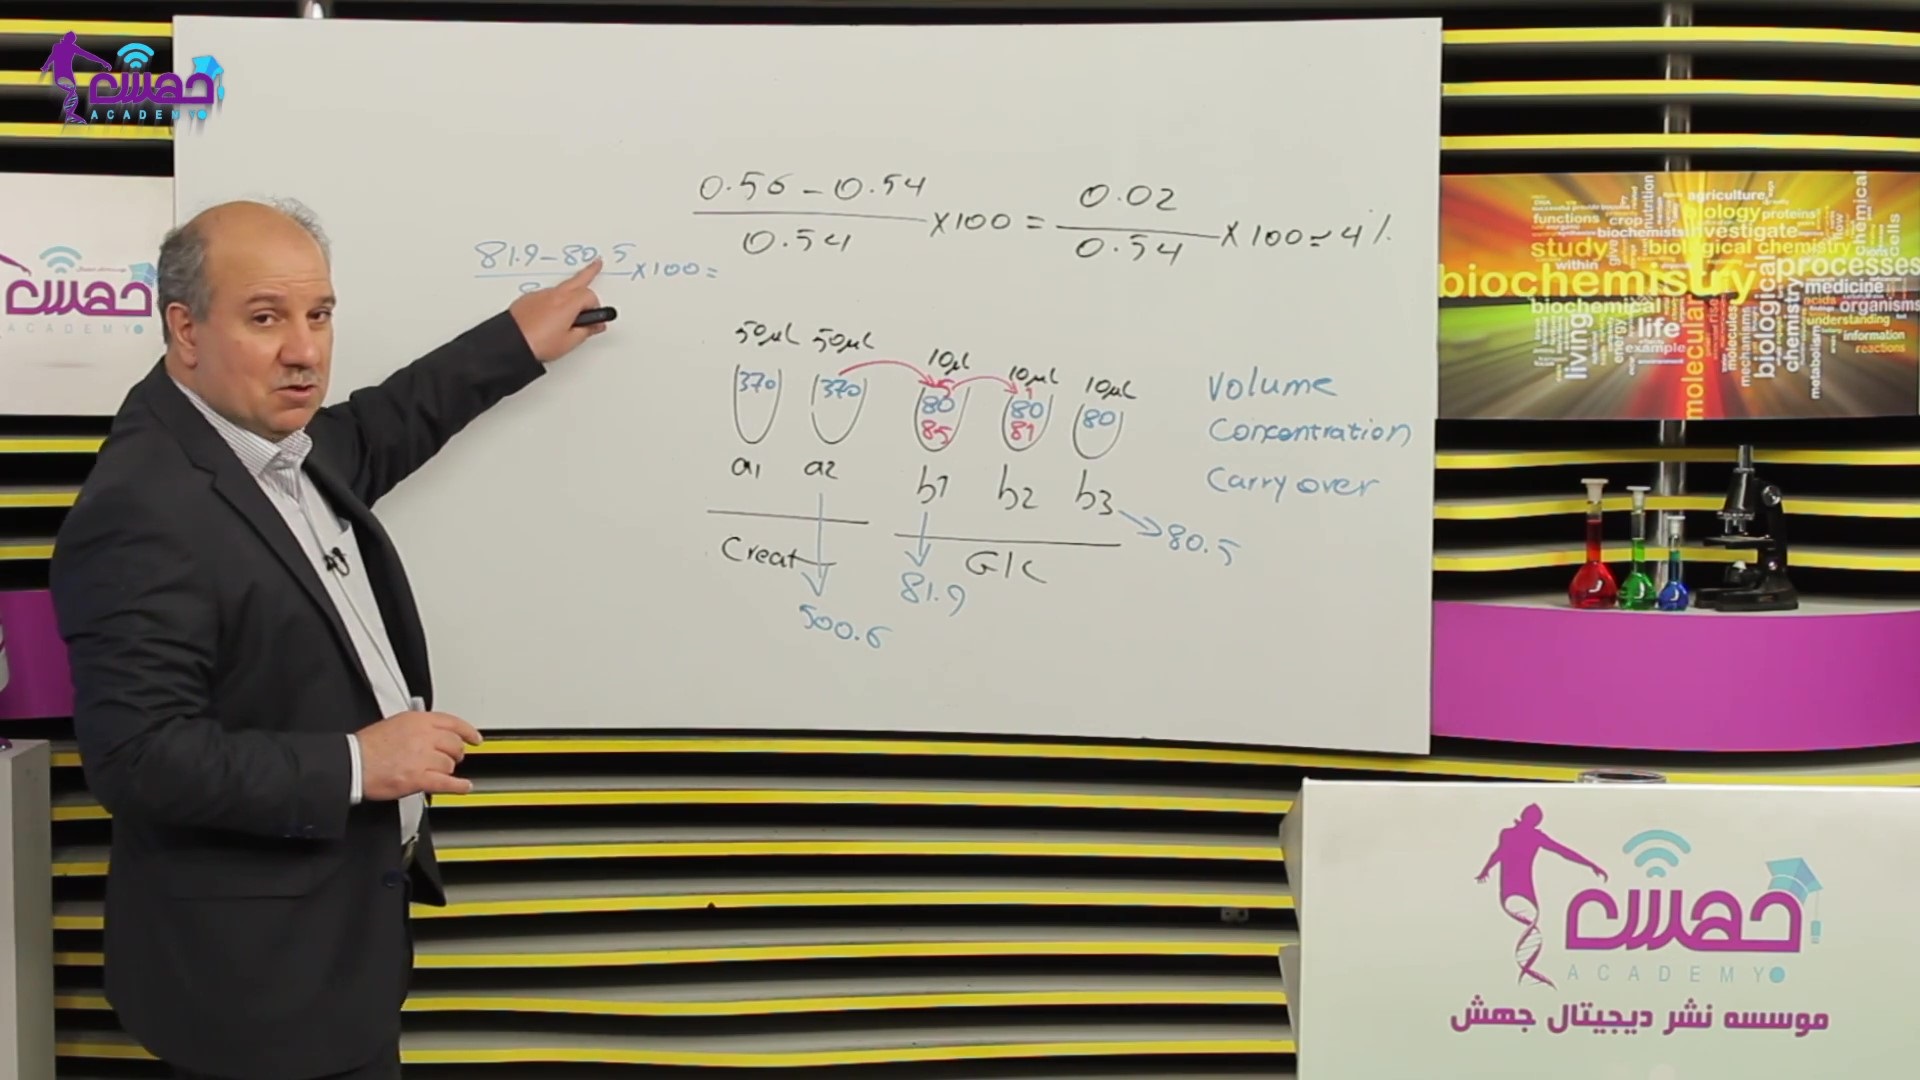 جهش
ACADEMY
0.56 - 0.54
0.54
x100 =
0.02
0.54
x100 = 4%
81.9 - 80.5
x100 =
50μL
50μL
10μL
10μL
10μL
370
370
5
80
85
1
80
81
80
a1
a2
b1
b2
b3
Creat
Glc
500.6
81.9
80.5
Volume
Concentration
Carry over
جهش
ACADEMY
agriculture
functions
crop
nutrition
biology
proteins
biochemists
investigate
study
biological chemistry
within
biochemistry
processes
medicine
biochemical
acids
organisms
life
understanding
example
information
reactions
living
energy
molecular
molecules
mechanisms
biological
chemistry
metabolism
chemical
cells
جهش
ACADEMY
موسسه نشر دیجیتال جهش